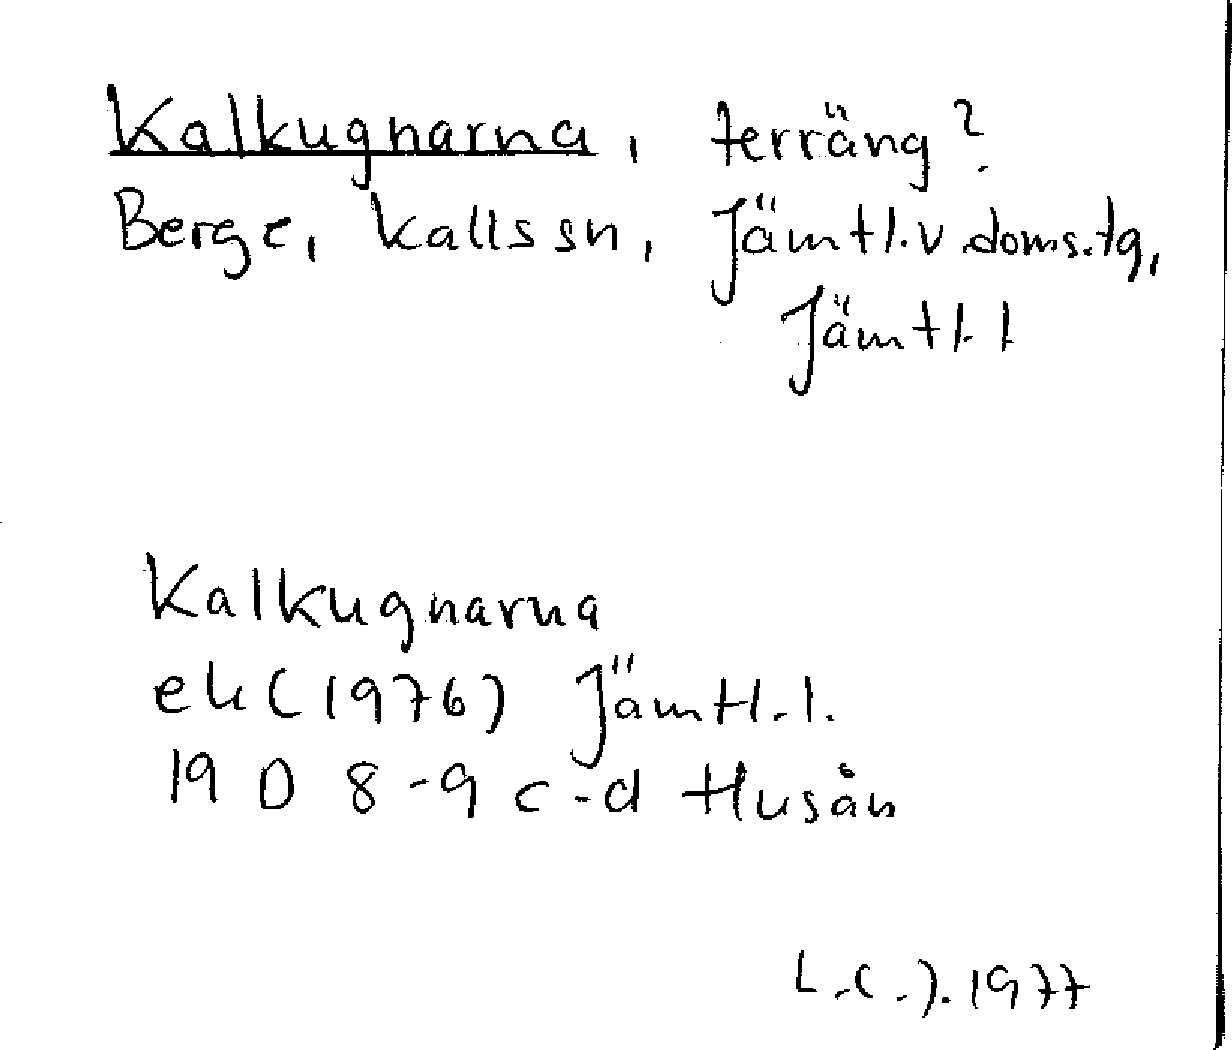 Kalkugnarna, terräng?
Berge, Kalls sn, Jämtl.v doms.tg,
Jämtl. l
Kalkugnarna
ek (1976) Jämtl.l.
19 D 8-9 c-d Husån
1977